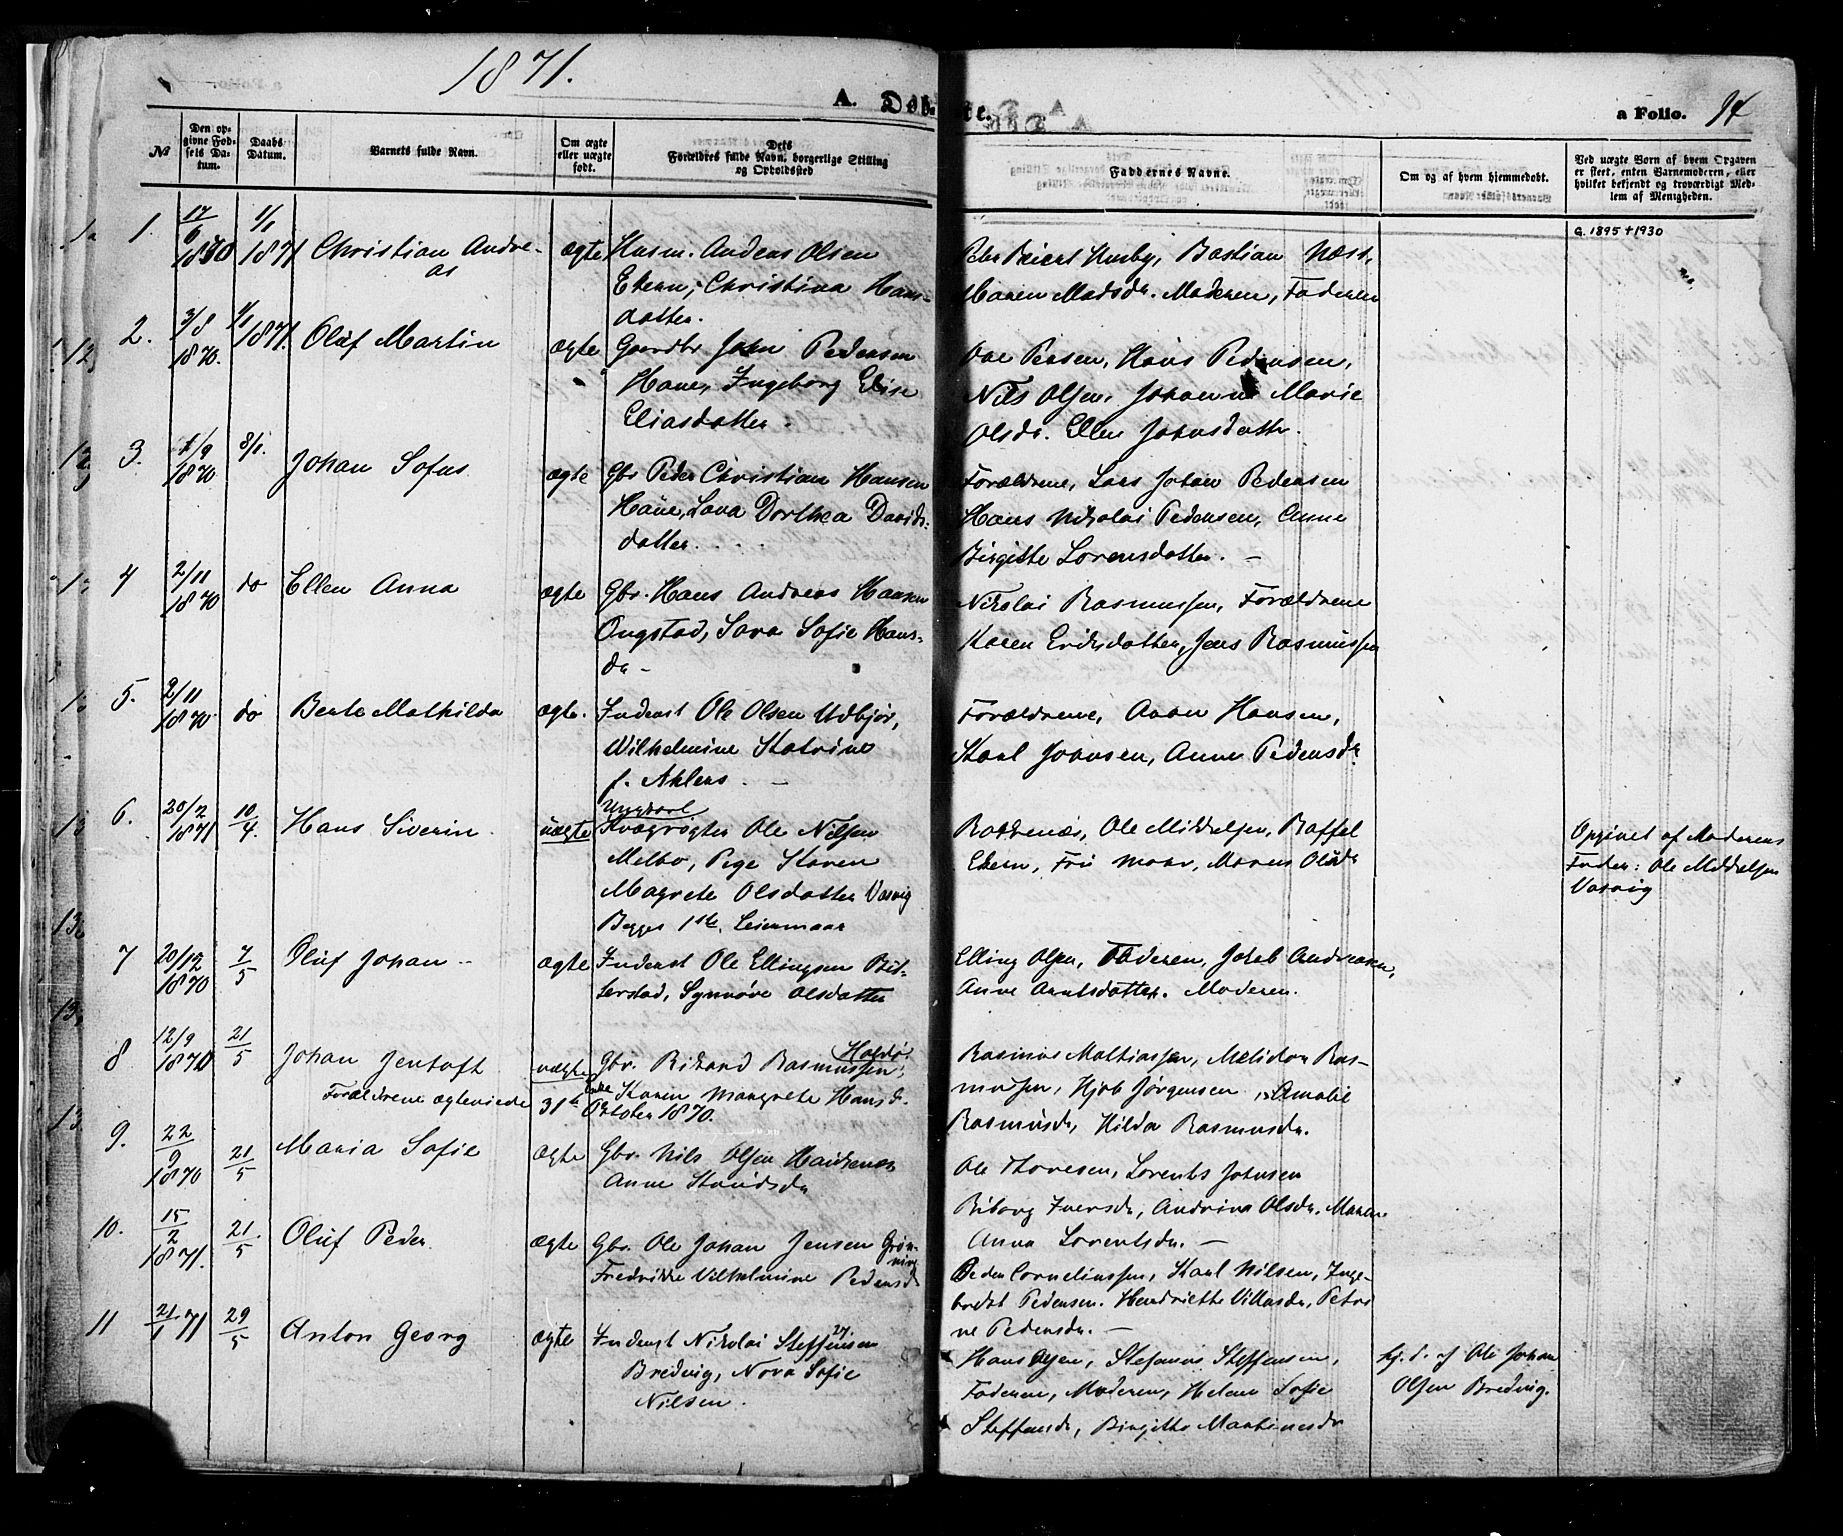 1871.
A. Døbte.
a Folio. 94
№
Den op-
givne Fød-
sels Da-
tum.
Daabs
Datum.
Barnets fulde Navn.
Om ægte
eller uægte
født.
Dets
Forældres fulde Navn, borgerlige Stilling
og Opholdssted
Faddernes Navne.
Om og af hvem hjemmedøbt.
Ved uægte Børn af hvem Opgaven
er skeet, enten Barnemoderen, eller
hvilket bekjendt og troværdigt Med-
lem af Menigheden.
1. 17/6 1870 1/1 1871 Christian Andre-
as
ægte Husm. Andreas Olsen
Ekern, Christina Hans-
datter.
Husby, Bastian Næss,
Maren Madsdr. Moderen, Faderen
G. 1895 + 1930
2. 3/8 1870. 1/1 1871. Oluf Martin
ægte Gaardbr John Pedersen
Hane, Ingeborg Elise
Eliasdatter.
Ole Hans Pedersen,
Nils Olsen, Johanna Marie
Olsdr. Ellen Johnsdatter.
3. 1/9 1870 8/1. Johan Sofus
ægte Gbr Peder Christian Hansen
Hane, Lava Dorthea Davids-
datter.
Forældrene, Lars Johan Pedersen
Hans Nikolai Pedersen, Anne
Birgitte Lorensdatter. —
4 2/11 1870 do Ellen Anna
ægte Gbr. Hans Andreas Hansen
Ongstad, Sara Sofie Hans-
dr —
Nikolai Rasmussen, Forældrene
Karen Eriksdatter, Jens Rasmussen
5. 2/11 1870. do Berte Mathilda
ægte. Inderst Ole Olsen Udbjør,
Wilhelmine Katrine
f. Ahlers. —
Forældrene, Hansen,
Karl Johnsen, Anne Pedersdr
6. 20/2 1871 10/4. Hans Siverin.
uægte Ungkarl
Kvægrøgter Ole Nilsen
Melbo, Pige Karen
Magrete Olsdatter Vasvig
Begges 1ste Leiermaal
Ole Mikkelsen, Raffel
Ekern, Fru Maren Olsdr
Opgivet af Moderens
Fader: Ole Mikkelsen
Vasvig
7 20/12 1870 7/5 Oluf Johan —
ægte Inderst Ole Ellingsen Bit-
terstad, Synnøve Olsdatter
Elling Olsen, Faderen, Jakob Andreasen,
Anne Arntsdatter. Moderen.
8 12/9 1870 21/5 Johan Jentoft
Forældrene ægteviede 31te Oktober 1870.
uægte Gbr. Rikard Rasmussen, Haldø.
Enke Karen Margrete Hansd.
Rasmus Mathiassen, Melidon Ras-
mussen, Hjob Jørgensen, Amalie
Rasmusdr, Hilda Rasmusdr.
9. 22/9 1870 21/5 Maria Sofie
ægte Gbr. Nils Olsen Haukenæs
Anne
Ole Thoresen, Lorents Johnsen
Biborg Iversdr, Andrina Olsdr. Maren
Anna Lorentsdr. —
10. 15/2 1871. 21/5 Oluf Peder
ægte Gbr. Ole Johan Jensen Grøn-
ning
Fredrikke Vilhelmine Pedersdr
Peder Corneliussen, Karl Nilsen, Inge-
brikt Pedersen. Henriette Villasdr, Petri
ne Pedersdr. —
11 21/1 71 29/5 Anton Georg
ægte Inderst Nikolai Steffensen 27
Bredvig, Nora Sofie
Nilsen.
Hans Olsen, Stefanus Steffensen,
Faderen, Moderen, Helene Sofie
Steffensdr, Birgitte Martinesdr
hj. d. af Ole Johan
Olsen Bredvig.